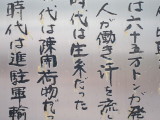 は六十五万トンが発
人が働き汗を流
時代は生糸だった
代は陳開荷物だっ
時代は進駐軍輸